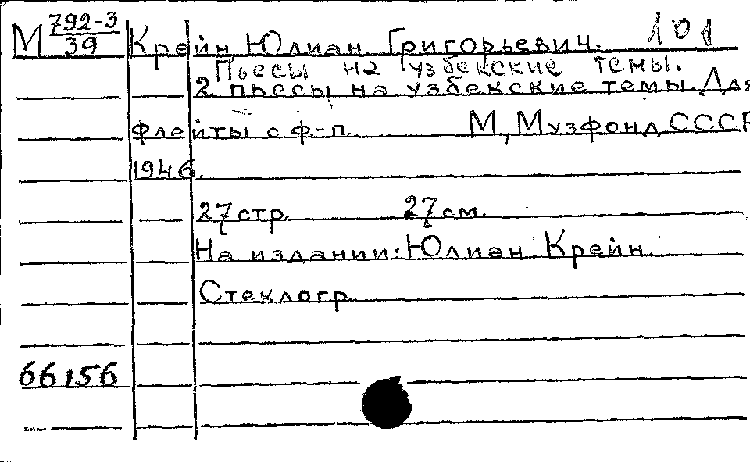 М 792-3/39 Крейн Юлиан Григорьевич. 101
Пьесы на узбекские темы.
2 пьесы на узбекские темы. Для
флейты с ф-п. М, Музфонд СССР
1946.
27 стр. 27 см.
На издании: Юлиан Крейн
Стеклогр.
66156